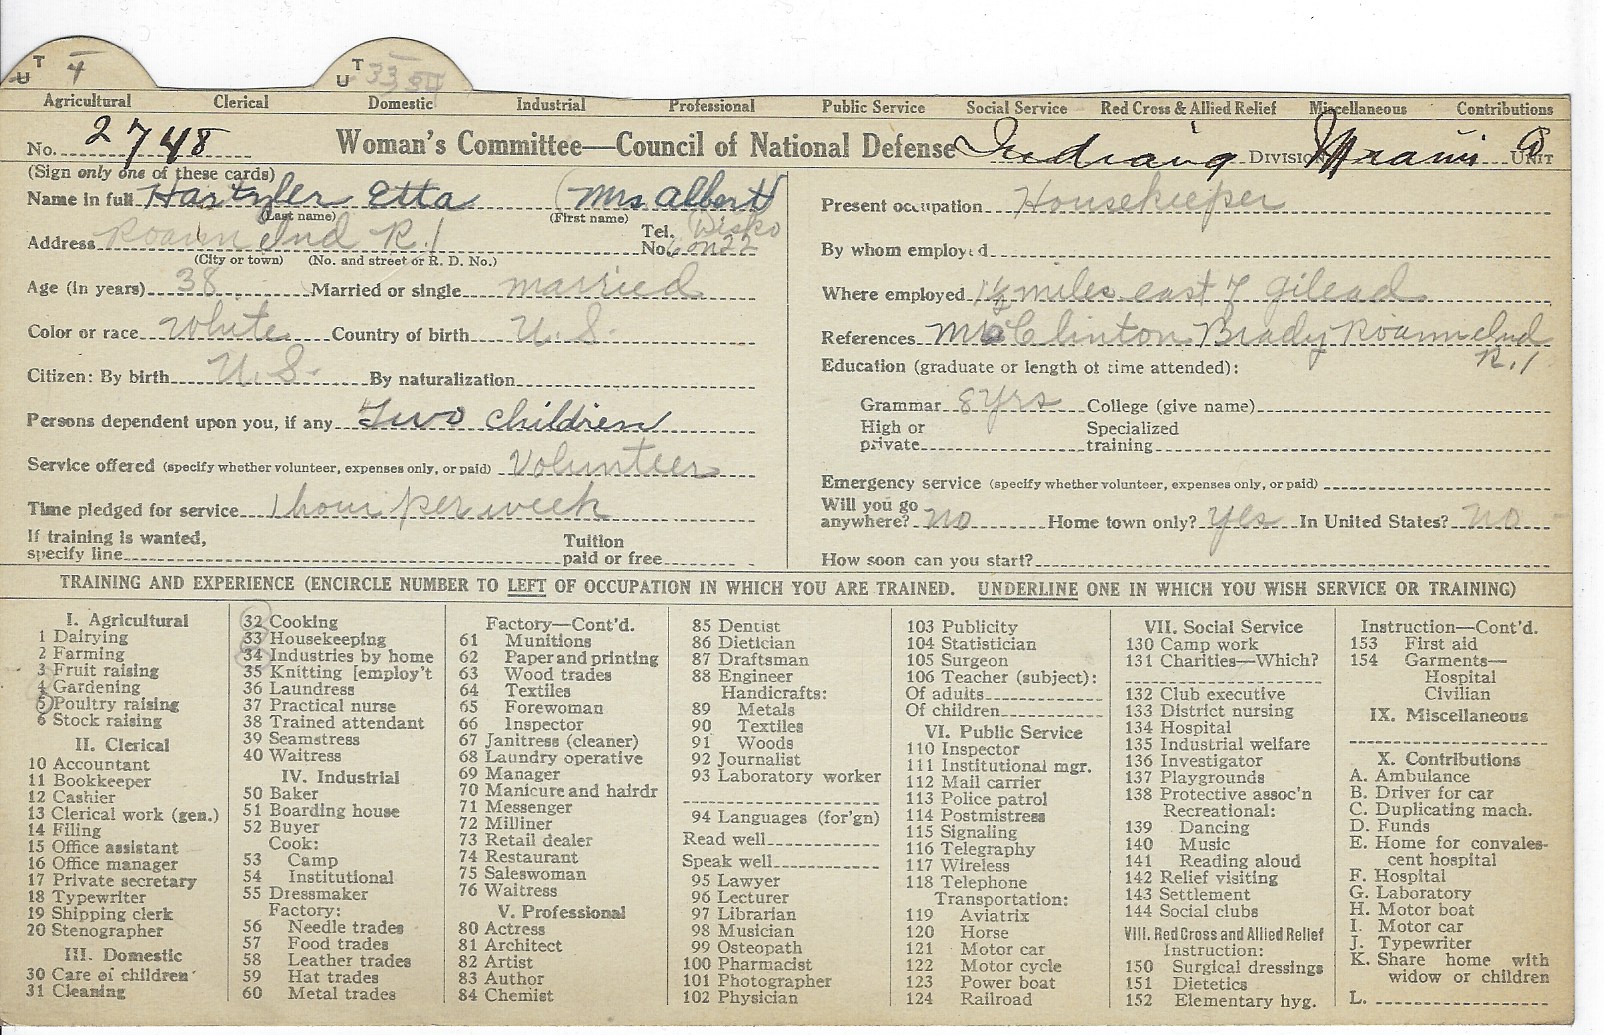 T U 4
T U 33 34
Agricultural Clerical Domestic Industrial Professional Public Service Social Service Red Cross & Allied Relief Miscellaneous Contributions
No. 2748 Woman's Committee—Council of National Defense Indiana DIVISION Miami UNIT
(Sign only one of these cards)
Name in full Hartzler Etta (Mrs Albert)
(Last name) (First name)
Address Roann Ind R.1 Tel. No. Disko 6 on 22
(City or town) (No. and street or R. D. No.)
Age (in years) 38 Married or single married
Color or race White Country of birth U.S.
Citizen: By birth U.S. By naturalization
Persons dependent upon you, if any Two children
Service offered (specify whether volunteer, expenses only, or paid) Volunteer
Time pledged for service 1 hour per week
If training is wanted,
specify line Tuition paid or free
Present occupation Housekeeper
By whom employed
Where employed 1½ miles east of Gilead
References Mrs Clinton Brady Roann Ind
R.1
Education (graduate or length of time attended):
Grammar 8 yrs College (give name)
High or private Specialized training
Emergency service (specify whether volunteer, expenses only, or paid)
Will you go anywhere? no Home town only? yes In United States? no
How soon can you start?
TRAINING AND EXPERIENCE (ENCIRCLE NUMBER TO LEFT OF OCCUPATION IN WHICH YOU ARE TRAINED. UNDERLINE ONE IN WHICH YOU WISH SERVICE OR TRAINING)
I. Agricultural
1 Dairying
2 Farming
3 Fruit raising
4 Gardening
5 Poultry raising
6 Stock raising
II. Clerical
10 Accountant
11 Bookkeeper
12 Cashier
13 Clerical work (gen.)
14 Filing
15 Office assistant
16 Office manager
17 Private secretary
18 Typewriter
19 Shipping clerk
20 Stenographer
III. Domestic
30 Care of children
31 Cleaning
32 Cooking
33 Housekeeping
34 Industries by home
35 Knitting [employ't
36 Laundress
37 Practical nurse
38 Trained attendant
39 Seamstress
40 Waitress
IV. Industrial
50 Baker
51 Boarding house
52 Buyer
Cook:
53 Camp
54 Institutional
55 Dressmaker
Factory:
56 Needle trades
57 Food trades
58 Leather trades
59 Hat trades
60 Metal trades
Factory—Cont'd.
61 Munitions
62 Paper and printing
63 Wood trades
64 Textiles
65 Forewoman
66 Inspector
67 Janitress (cleaner)
68 Laundry operative
69 Manager
70 Manicure and hairdr
71 Messenger
72 Milliner
73 Retail dealer
74 Restaurant
75 Saleswoman
76 Waitress
V. Professional
80 Actress
81 Architect
82 Artist
83 Author
84 Chemist
85 Dentist
86 Dietician
87 Draftsman
88 Engineer
Handicrafts:
89 Metals
90 Textiles
91 Woods
92 Journalist
93 Laboratory worker
94 Languages (for'gn)
Read well
Speak well
95 Lawyer
96 Lecturer
97 Librarian
98 Musician
99 Osteopath
100 Pharmacist
101 Photographer
102 Physician
103 Publicity
104 Statistician
105 Surgeon
106 Teacher (subject):
Of adults
Of children
VI. Public Service
110 Inspector
111 Institutional mgr.
112 Mail carrier
113 Police patrol
114 Postmistress
115 Signaling
116 Telegraphy
117 Wireless
118 Telephone
Transportation:
119 Aviatrix
120 Horse
121 Motor car
122 Motor cycle
123 Power boat
124 Railroad
VII. Social Service
130 Camp work
131 Charities—Which?
132 Club executive
133 District nursing
134 Hospital
135 Industrial welfare
136 Investigator
137 Playgrounds
138 Protective assoc'n
Recreational:
139 Dancing
140 Music
141 Reading aloud
142 Relief visiting
143 Settlement
144 Social clubs
VIII. Red Cross and Allied Relief
Instruction:
150 Surgical dressings
151 Dietetics
152 Elementary hyg.
Instruction—Cont'd.
153 First aid
154 Garments—
Hospital
Civilian
IX. Miscellaneous
X. Contributions
A. Ambulance
B. Driver for car
C. Duplicating mach.
D. Funds
E. Home for convales-
cent hospital
F. Hospital
G. Laboratory
H. Motor boat
I. Motor car
J. Typewriter
K. Share home with
widow or children
L.